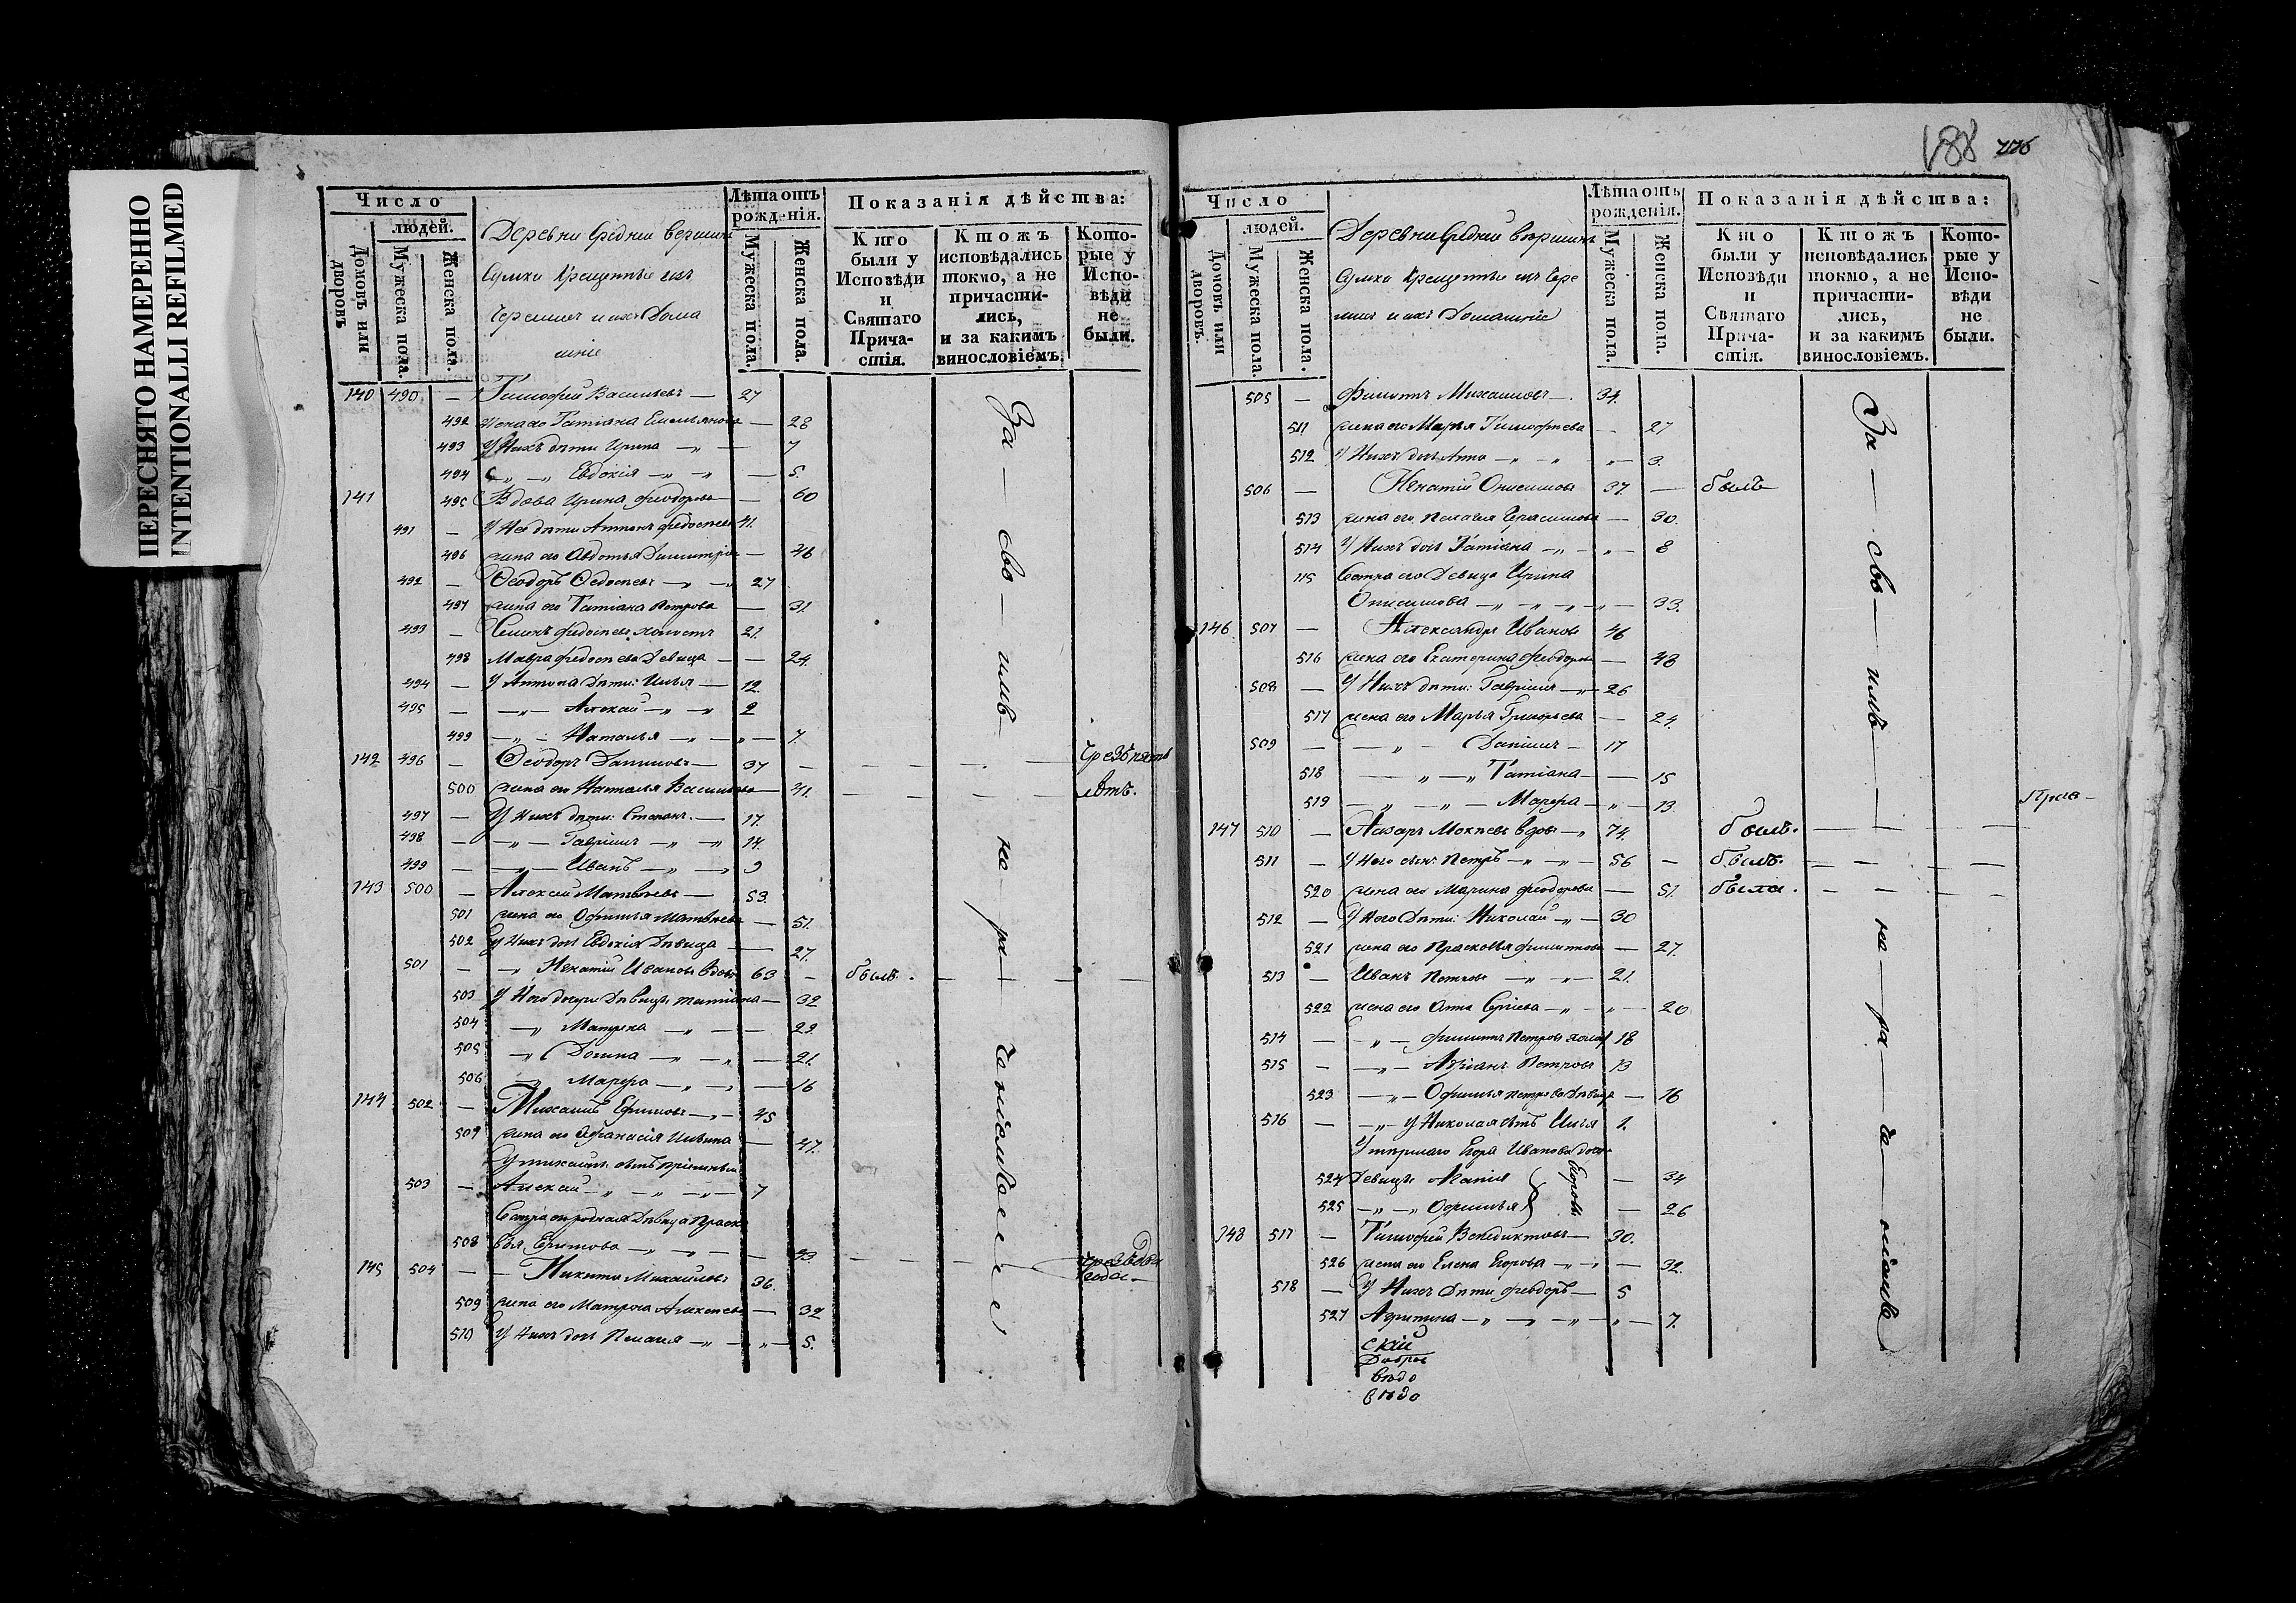 ПЕРЕСНЯТО НАМЕРЕННО
INTENTIONALLI REFILMED
Число
людей.
Домовъ или дворовъ
Мужеска пола.
Женска пола.
Деревни Средней вершины
Сумки крещенные изъ
Черемисъ и ихъ Дома
шніе
Лѣта отъ рожденія.
Мужеска пола.
Женска пола.
Показанія дѣйства:
Кто были у Исповѣди и Святаго Причастія.
Ктожъ исповѣдались токмо, а не причастились, и за какимъ винословіемъ.
Которые у Исповѣди не были.
140 490 — Тимофей Васильевъ — 27
492 жена его Татіана Емельянова — 28
493 У Нихъ дѣти Ирина —„— 7
494 —„— Евдокія —„— 5.
141 495 Вдова Ирина Феодорова — 60
491 — У Нее дѣти Антонъ Федосѣевъ 41.
496 жена его Авдотья Димитріева — 46
492 — Феодоръ Федосѣевъ —„— 27
497 жена его Татіана Петрова — 31.
493 — Семенъ Федосѣевъ холостъ 21.
498 Мавра Федосѣева Девица — 24.
494 — У Антона Дѣти: Илья — 12
495 — —„— Алексей —„— 2
499 —„— Наталья —„— 7.
142 496 — Феодоръ Даниловъ — 37 — чрезъ пять
500 жена его Наталья Васильева — 41. — лѣтъ.
497 — У Нихъ дѣти: Степанъ. — 17.
498 — —„— Гавріилъ —„— 14.
499 — —„— Иванъ —„— 9
143 500 — Алексей Матвѣевъ — 53.
501 жена его Офимья Матвѣева — 51.
502 У Нихъ доч Евдокія Дѣвица — 27.
501 — —„ Игнатій Ивановъ вдовъ 63 — былъ.
503 У Него дочери Дѣвицы: Татіана — 32
504 —„ Матрена —„— 29.
505 —„ Домна —„— 21.
506 —„ Марфа —„— 16
144 502 — Михаилъ Ефимовъ —„— 45
507 жена его Афанасія Ильина — 47.
503 — Алексей —„— 7
Сестра его родная Дѣвица Праско
508 вья Ефимова —„— 43.
145 504 — Никита Михайловъ 36. — чрезъ два года
509 жена его Матрена Алексѣева — 32
510 У Нихъ доч Пелагея —„— 5.
За — сво — имъ — на ра — чаніемъ
188 776
Число
людей.
Домовъ или дворовъ.
Мужеска пола.
Женска пола.
Деревни Средней вершины
Сумки Крещенные изъ Чере
мисъ и ихъ Домашніе
Лѣта отъ рожденія.
Мужеска пола.
Женска пола.
Показанія дѣйства:
Кто были у Исповѣди и Святаго Причастія.
Ктожъ исповѣдались токмо, а не причастились, и за какимъ винословіемъ.
Которые у Исповѣди не были.
505 — Филиппъ Михайловъ —. 34.
511 жена его Марья Тимофеева — 27
512 У Нихъ доч Анна —„— 3.
506 — Игнатій Онисимовъ 37. — былъ
513 жена его Пелагея Герасимова — 30.
514 У Нихъ доч Татіана —„— 8
115 Сестра его Девица Ирина
Онисимова —„— 33.
146 507 — Александръ Ивановъ 46
516 жена его Екатерина Феодорова — 48
508 — У Нихъ дѣти: Гавріилъ —„— 26
517 жена его Марья Григорьева — 24.
509 — —„— Даніилъ — 17
518 —„— Татіана — 15
519 —„— Марфа —„— 13.
147 510 — Назаръ Мокѣевъ вдовъ —„ 74. былъ.
511 — У Него сынъ Петръ —„— 56 — былъ.
520 жена его Марина Феодорова — 51. была.
512 — У Него Дѣти: Николай —„— 30
521 жена его Прасковья Филиппова — 27.
513 — Иванъ Петровъ —„— 21.
522 жена его Анна Сергіева —„— 20
514 — —„— Филиппъ Петровъ холос 18
515 — —„— Адріанъ Петровъ 13
523 —„— Офимья Петрова Дѣвица — 16
516 — —„— У Николая сынъ Илья 1.
Умершаго Егора Иванова доче
524 Девицы Марія — 34
525 —„— Офимья — 26
Егоровы
148 517 — Тимофей Венедиктовъ — 30.
526 жена его Елена Егорова —„— 32.
518 — У Нихъ Дѣти Феодоръ — 5
527 Акулина —„— 7.
скій
Добро
вѣдо
вѣдо
За — сво — имъ — на — ра — ча — ніемъ